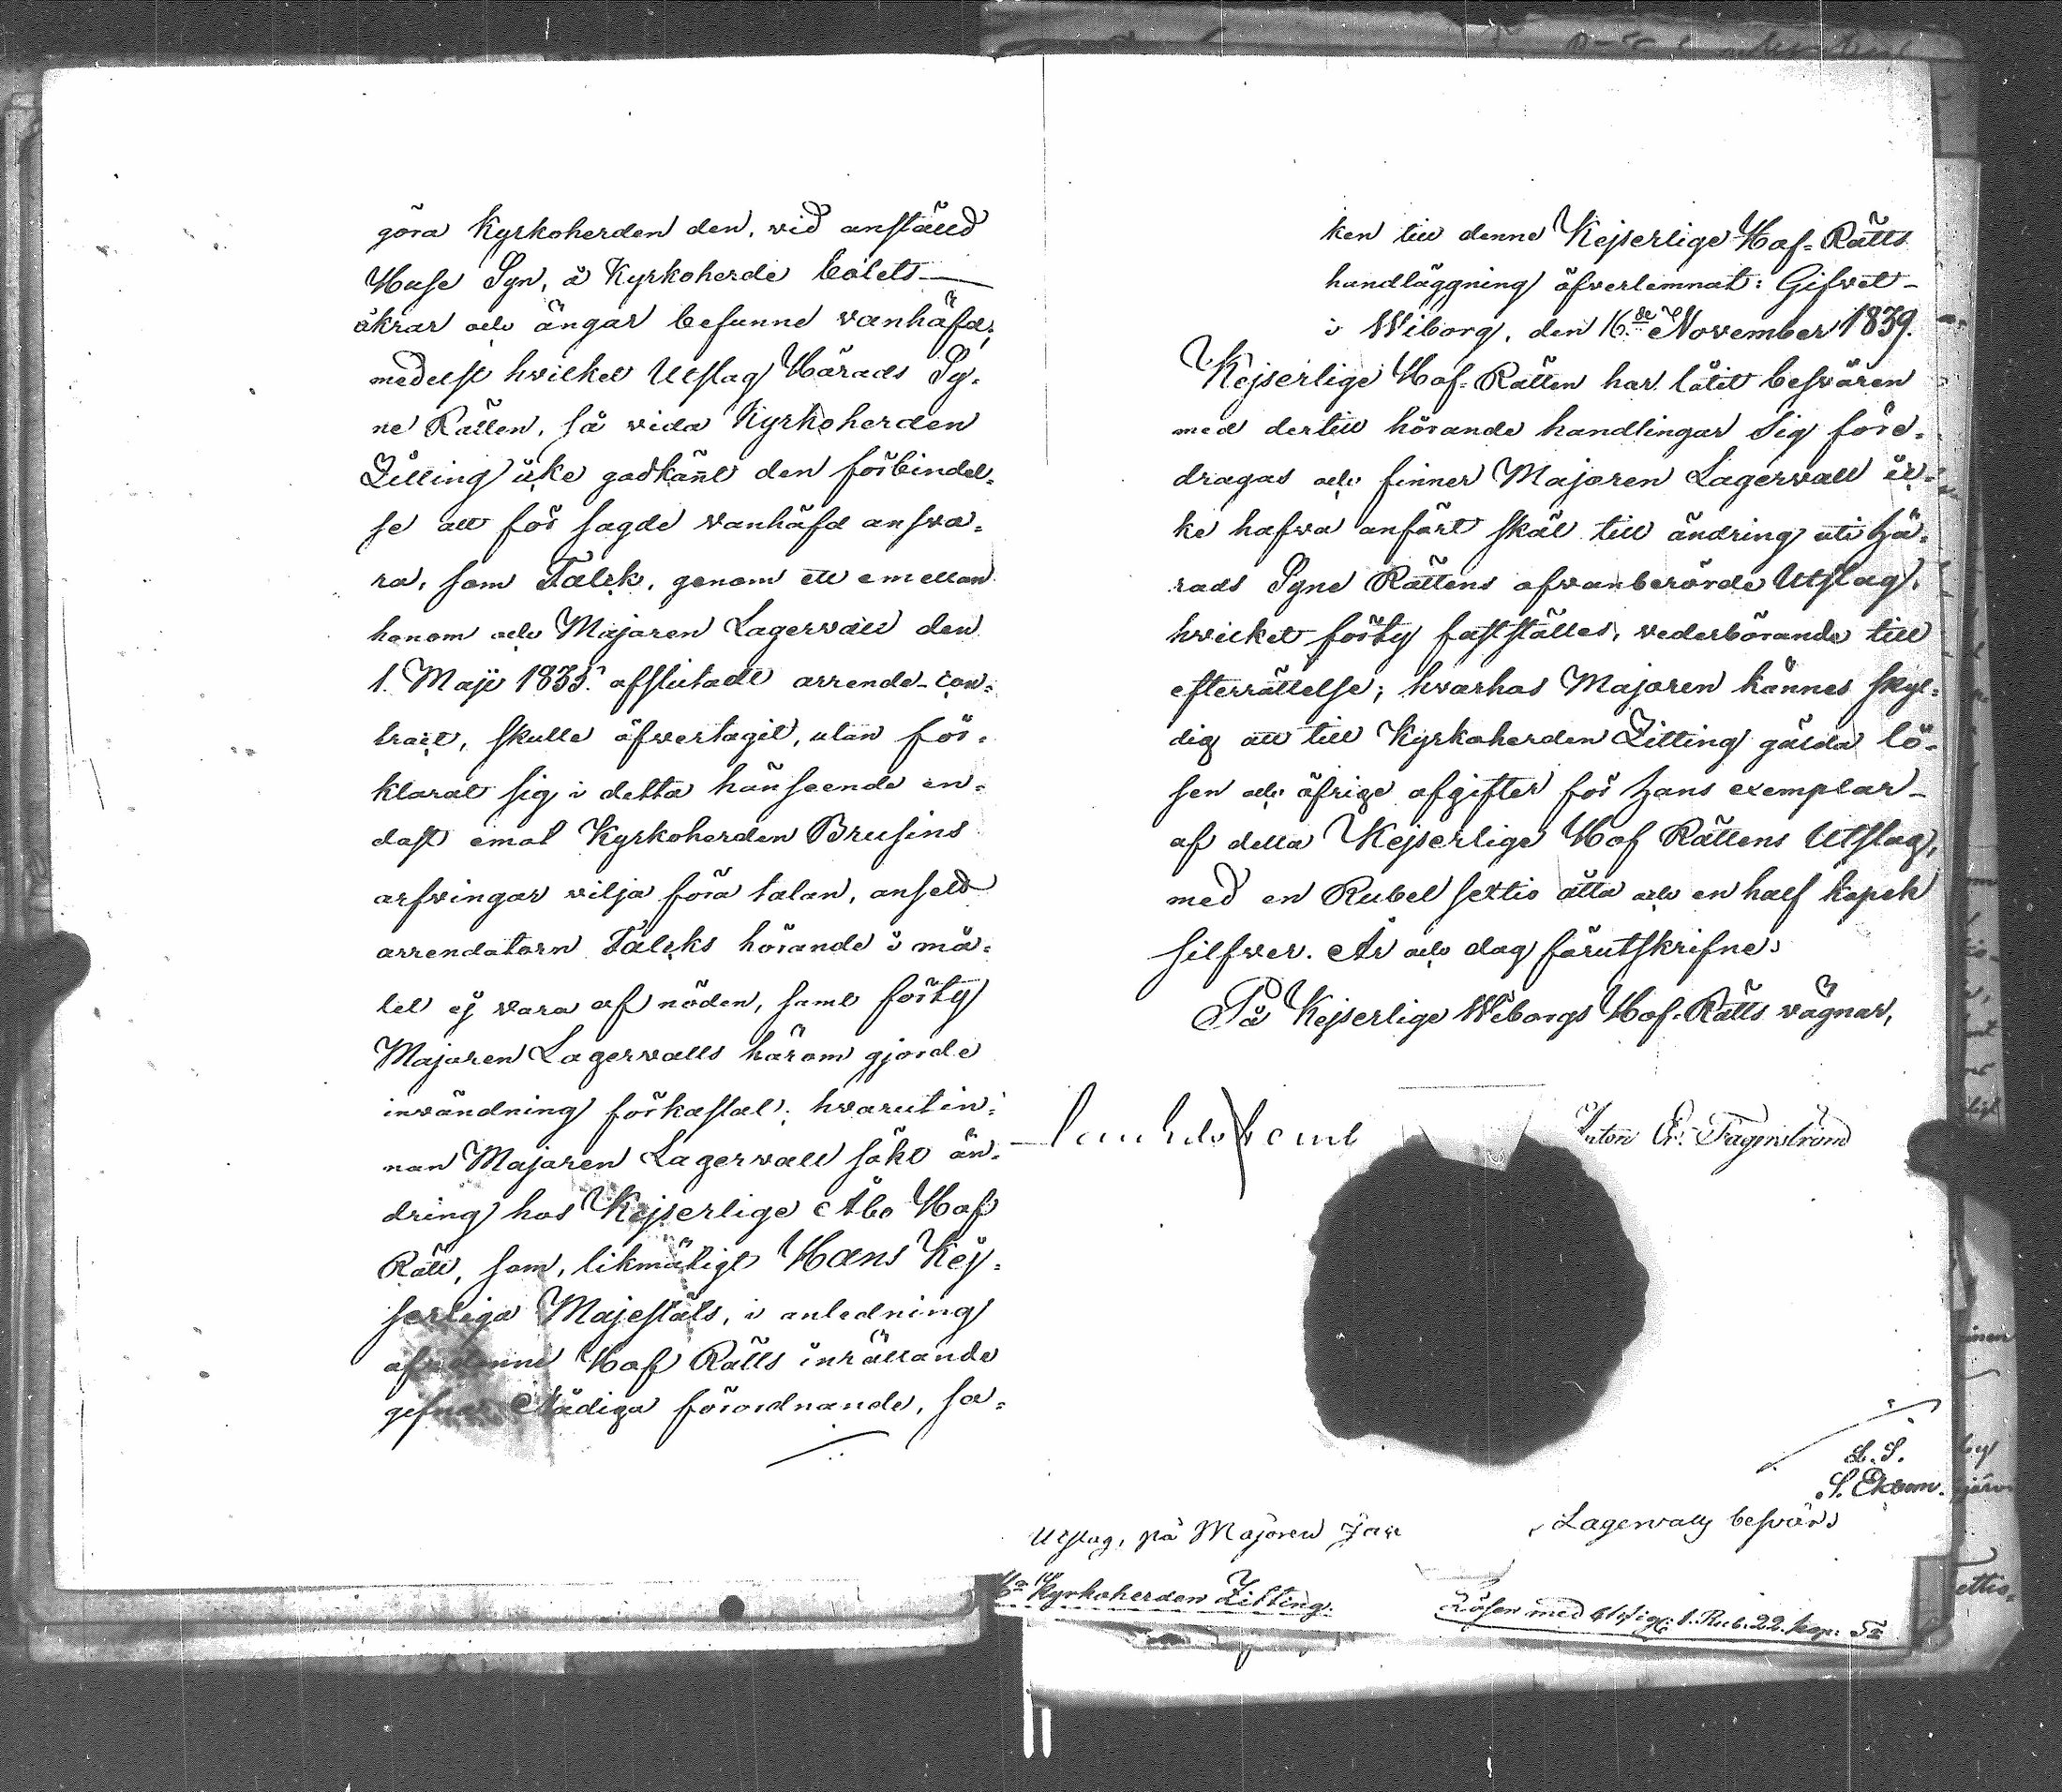 göra Kyrkoherden den, vid anstäld
Huse Syn, å Kyrkoherde bolets
åkrar och ängar befunne vanhäfd,
medelst hvilket Utslag Härads Sy-
ne Rätten, så vida Kyrkoherden
Zitting icke godkänt den förbindel-
se att för sagde vanhäfd ansva-
ra, som Falck, genom ett emellan
honom och Majoren Lagervall den
1. Maji 1835. afslutadt arrende-con-
tract, skulle öfvertagit, utan för-
klarat sig i detta hänseende en-
dast emot Kyrkoherden Brusins
arfvingar vilja föra talan, ansedt
arrendatorn Falcks hörande i må-
let ej vara af nöden, samt förty
Majoren Lagervalls härom gjorde
invändning förkastat; hvarutin-
nan Majoren Lagervall sökt än-
dring hos Kejserlige Åbo Hof
Rätt, som, likmätigt Hans Kej-
serliga Majestäts, i anledning
af denne Hof Rätts inrättande
gifna Nådiga förordnande, sa-
ken till denne Kejserlige Hof-Rätts
handläggning öfverlemnat: Gifvet
i Wiborg, den 16.de November 1839.
Kejserlige Hof-Rätten har låtit besvären
med dertill hörande handlingar Sig före-
dragas och finner Majoren Lagervall ic-
ke hafva anfört skäl till ändring uti Hä-
rads Syne Rättens ofvanberörde Utslag,
hvilket förty fastställes, vederbörande till
efterrättelse; hvarhos Majoren kännes skyl-
dig att till Kyrkoherden Zitting gälda lö-
sen och öfrige afgifter för Hans exemplar
af detta Kejserlige Hof Rättens Utslag,
med en Rubel sextio åtta och en half kopek
silfver. År och dag förutskrifne.
På Kejserlige Wiborgs Hof-Rätts vägnar,
Anton Er. Fagerström
L.S.
S. Ekbom.
Utslag, på Majoren Lagervalls besvär.
Kyrkoherden Zitting.
Lösen med 1. Rub. 22. kop.